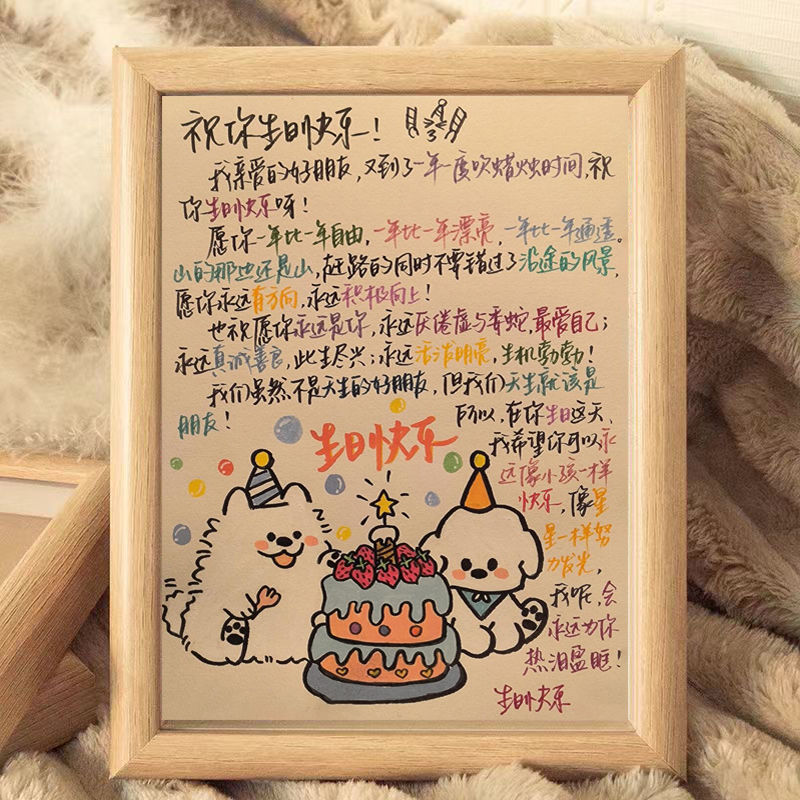 祝你生日快乐！
我亲爱的好朋友，又到了一年一度吹蜡烛时间，祝
你生日快乐呀！
愿你一年比一年自由，一年比一年漂亮，一年比一年通透。
山的那边还是山，赶路的同时不要错过了沿途的风景，
愿你永远有方向，永远积极向上！
也祝愿你永远是你，永远厌倦虚与委蛇，最爱自己；
永远真诚善良，此生尽兴；永远活泼明亮，生机勃勃！
我们虽然不是天生的好朋友，但我们天生就该是
朋友！
所以，在你生日这天、
我希望你可以永
远像小孩一样
快乐，像星
星一样努
力发光，
我呢，会
永远为你
热泪盈眶！
生日快乐
生日快乐